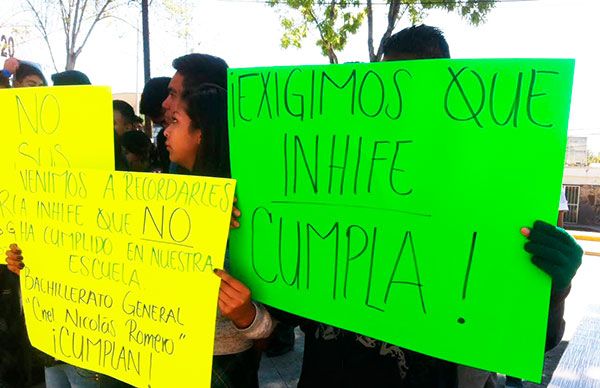 20
NO
SUS
VENIMOS A RECORDARLES
A INHIFE QUE NO
HA CUMPLIDO EN NUESTRA
ESCUELA.
BACHILLERATO GENERAL
"Cnel Nicolás Romero"
¡CUMPLAN!
¡EXIGIMOS QUE
INHIFE
CUMPLA!